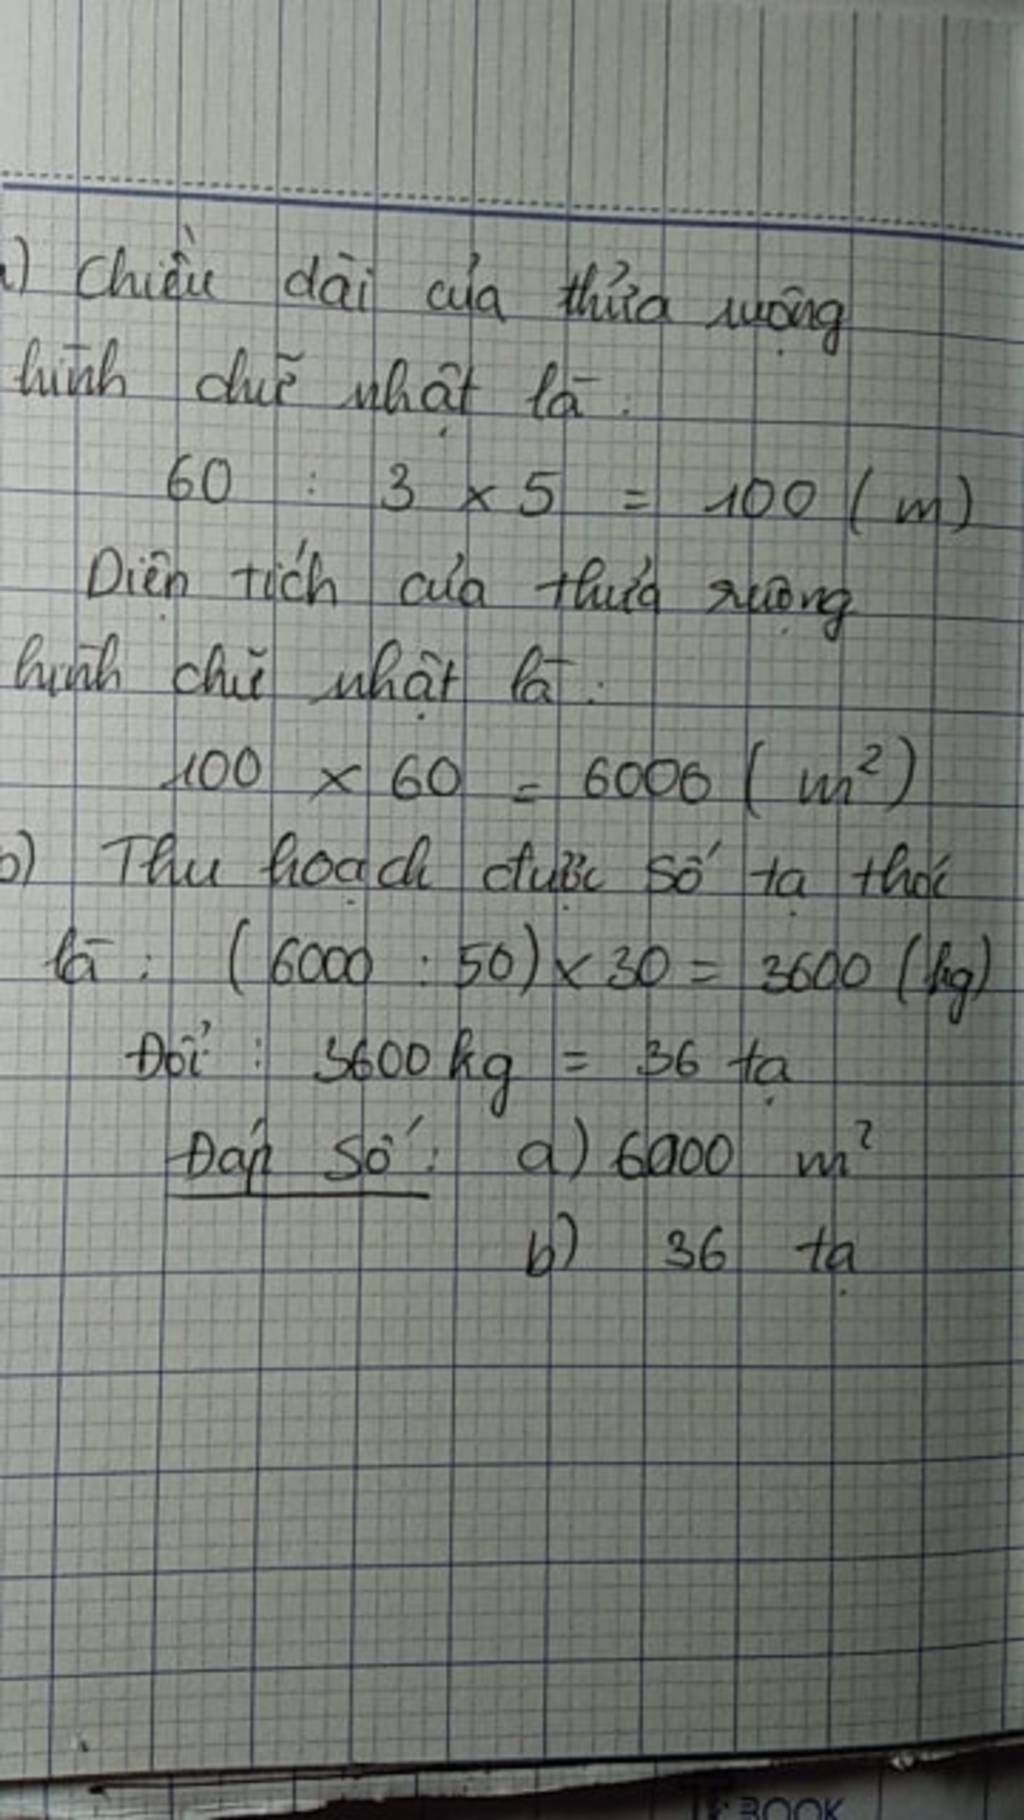 a) Chiều dài của thửa ruộng
hình chữ nhật là:
60 : 3 x 5 = 100 (m)
Diện tích của thửa ruộng
hình chữ nhật là:
100 x 60 = 6000 (m²)
b) Thu hoạch được số tạ thóc
là: (6000 : 50) x 30 = 3600 (kg)
Đổi: 3600 kg = 36 tạ
Đáp số: a) 6000 m²
b) 36 tạ
BOOK